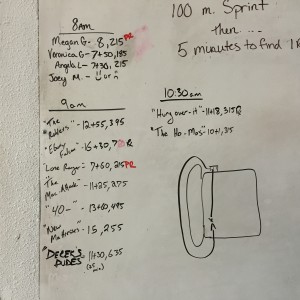 100 m. Sprint
then ...
5 minutes to find 1 R
8am
Megan G- 8,215 PR
Veronica G- 7+50,185
Angela L- 7+30, 215
Joey M. - or
9am
"The - 12+55,395
"Ebony - 15+30,
"Lone Ranger"- 7+60,215 PR
"The - 11+25,275
"40-" - 13+60,495
"New - 15,255
DEREK'S
DUDES" - 11+30,635
10:30am
"Hung over-it"- 11+18,315
"The Ho-Mos"- 10+1,35